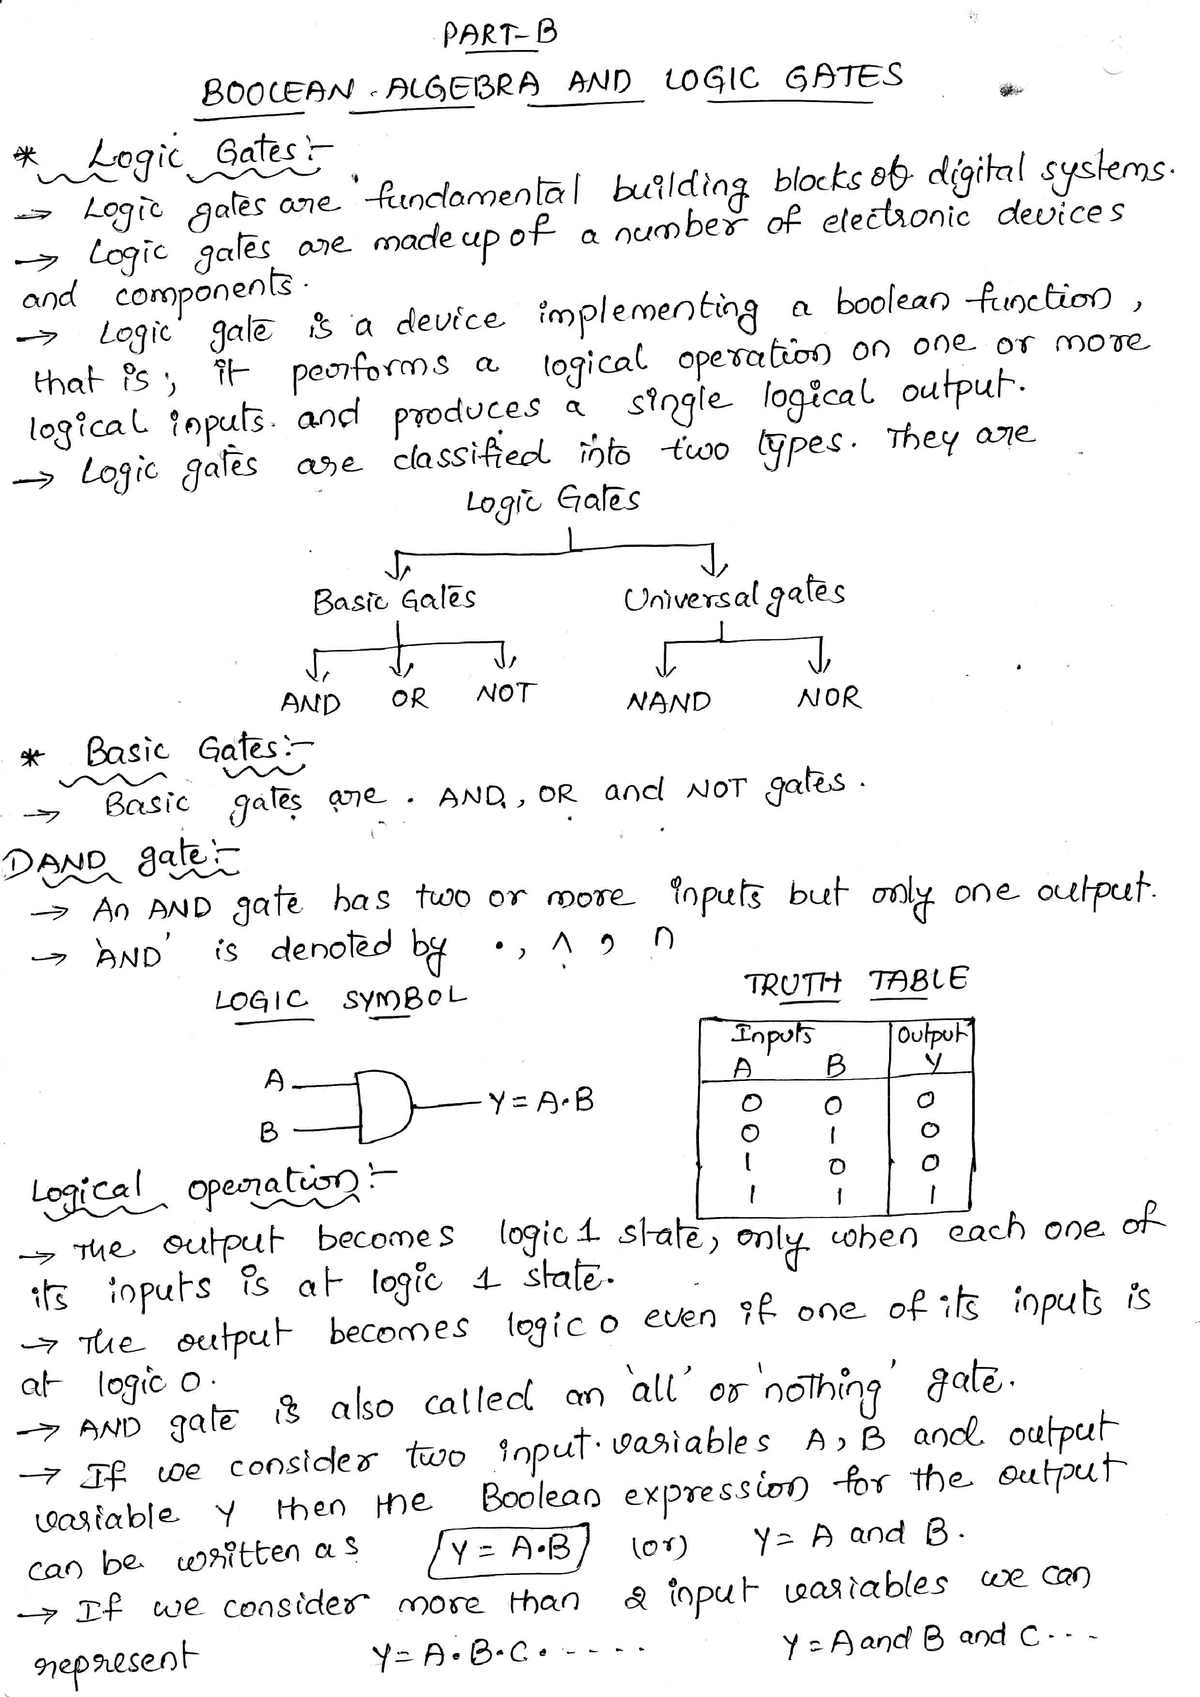 PART-B
BOOLEAN ALGEBRA AND LOGIC GATES
* Logic Gates:-
→ Logic gates are fundamental building blocks of digital systems.
→ Logic gates are made up of a number of electronic devices
and components.
→ Logic gate is a device implementing a boolean function,
that is, it performs a logical operation on one or more
logical inputs. and produces a single logical output.
→ Logic gates are classified into two types. They are
Logic Gates
Basic Gates Universal gates
AND OR NOT NAND NOR
* Basic Gates:-
→ Basic gates are . AND, OR and NOT gates.
1) AND gate:-
→ An AND gate has two or more inputs but only one output.
→ 'AND' is denoted by •, ∧, ∩
LOGIC SYMBOL TRUTH TABLE
Inputs Output
A B Y
0 0 0
0 1 0
1 0 0
1 1 1
A
B
Y = A•B
Logical operation:-
→ The output becomes logic 1 state, only when each one of
its inputs is at logic 1 state.
→ The output becomes logic 0 even if one of its inputs is
at logic 0.
→ AND gate is also called an 'all' or 'nothing' gate.
→ If we consider two input variables A, B and output
variable Y then the Boolean expression for the output
can be written as Y = A•B (or) Y = A and B.
→ If we consider more than 2 input variables we can
represent Y = A•B•C• ----- Y = A and B and C ---